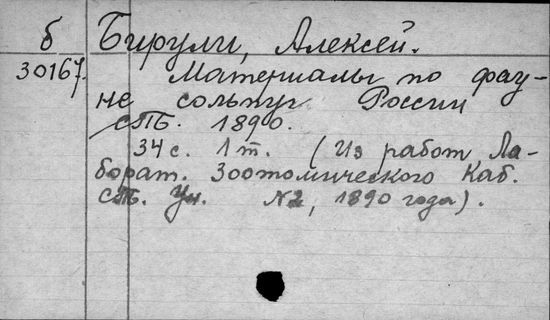 б Бирули, Алексей.
30167. Материалы по фау-
не сольпуг России
СПБ. 1890.
34 с. 1 т. (Из работ Ла-
борат. Зоотомического Каб.
СПБ. Ун. №2, 1890 года).